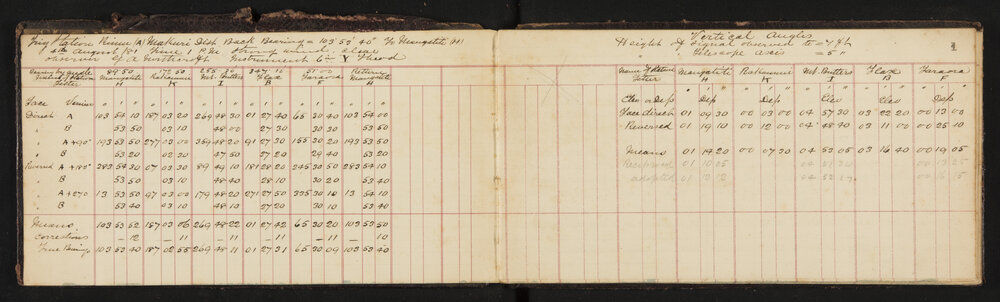 Trig Station Rimu (A) Makuri Dist Back Bearing = 103° 53' 40" To Mangatiti (H)
August /81 Time 1 P.M. Strong wind. clear
Observer G A Northcroft Instrument 6in Y Theod
89 50 17 50 255 36 347 16 51 00 Returning
Mangatiti Rakaumui Mt. Butters Flax Taraora Mangatiti
H K I B F H
Face Vernier ° ' " ° ' " ° ' " ° ' " ° ' " ° ' "
Direct A 103 54 10 187 03 20 269 48 30 01 27 40 65 30 40 103 54 00
" B 53 50 03 10 48 00 27 30 30 30 53 50
" A+90° 193 53 50 277 03 00 359 48 20 91 27 30 155 30 20 193 53 50
" B 53 20 02 30 47 50 27 20 29 40 53 20
Reversed A+180° 283 54 30 07 03 30 89 49 00 181 28 20 245 30 50 283 54 10
" B 53 50 03 10 48 40 28 10 30 20 53 40
" A+270 13 53 50 97 03 00 179 48 20 271 27 50 335 30 10 13 54 10
" B 53 40 48 10 27 20 30 10 53 40
Means 103 53 52 187 03 06 269 48 22 01 27 42 65 30 20 103 53 50
Corrections - 12 - 11 - 11 - 11 - 11 - 10
True Bearings 103 53 40 187 02 55 269 48 11 01 27 31 65 30 09 103 53 40
1
Vertical Angles
Height of Signal observed to = 7 ft
" Telescope Axis = 5 "
Mangatiti Rakaumui Mt. Butters Flax Taraora
H K I B F
° ' " ° ' " ° ' " ° ' " ° ' "
Elev or Dep Dep Dep Elev Elev Dep
Face direct 01 09 30 00 03 00 04 57 30 03 22 20 00 13 00
Reversed 01 19 10 00 12 00 04 48 40 03 11 00 00 25 10
Means 01 14 20 00 07 30 04 53 05 03 16 40 00 19 05
Reciprocal 01 10 25
adopted 01 12 12